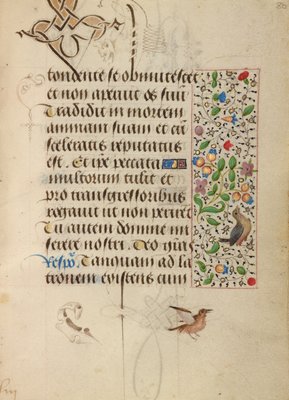 86
tondente se obmutescet
et non aperuit os suu
Tradidit in mortem
animam suam et cū
sceleratis reputatus
est. Et ipe peccata
multorum tulit et
pro transgressoribus
rogauit ut non perirēt
Tu autem domine mi
serere nostri. Deo grās
Respō. Tanquam ad la
tronem existens cum